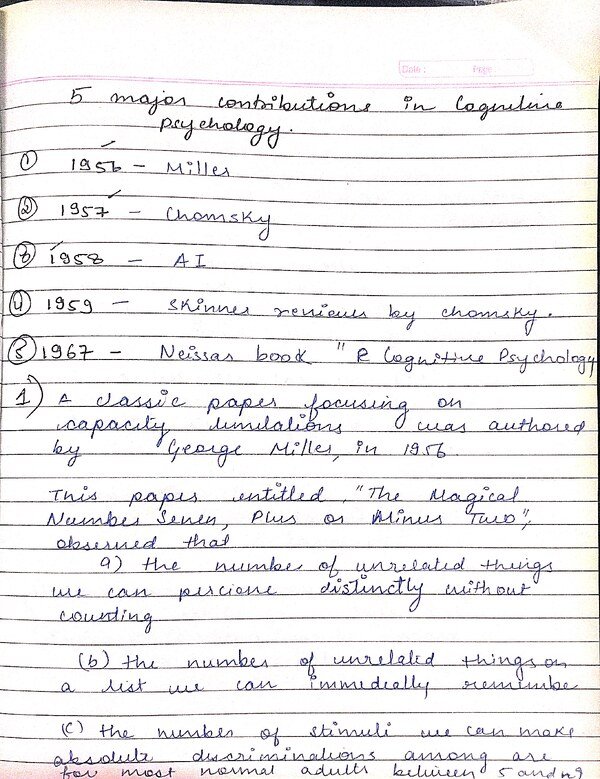 Date : Page
5 major contributions in Cognitive
Psychology.
① 1956 - Miller
② 1957 - Chomsky
③ 1958 - AI
④ 1959 - Skinner reviews by chomsky.
⑤ 1967 - Neissar book "R Cognitive Psychology
1) A classic paper focusing on
capacity limitations was authored
by George Miller, in 1956
This paper entitled, "The Magical
Number Seven, Plus or Minus Two",
observed that
a) the number of unrelated things
we can percieve distinctly without
counting
(b) the number of unrelated things on
a list we can immedially remembe
(c) the number of stimuli we can make
absolute discriminations among are
for most normal adults between 5 and 9